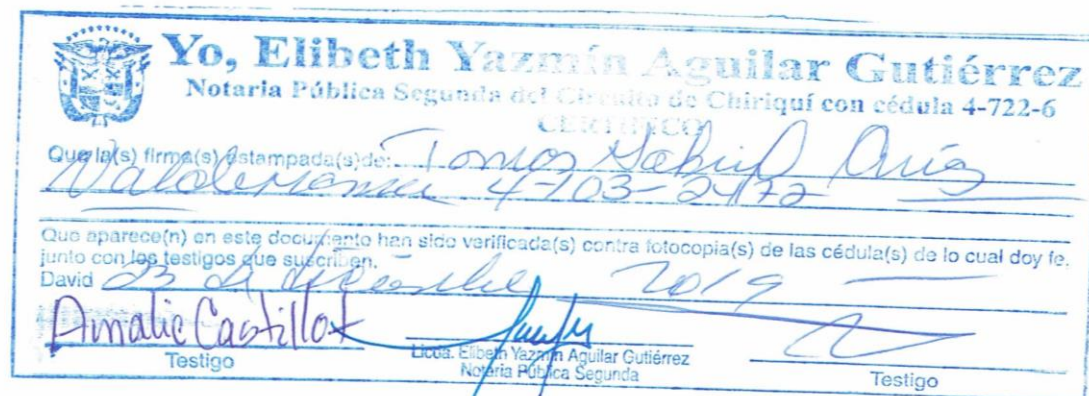 Yo, Elibeth Yazmín Aguilar Gutiérrez
Notaria Pública Segunda del Circuito de Chiriquí con cédula 4-722-6
CERTIFICO
Que la(s) firma(s) estampada(s) de: Tomas Gabriel
Valderrama 4-103-2472
Que aparece(n) en este documento han sido verificada(s) contra fotocopia(s) de las cédula(s) de lo cual doy fe,
junto con los testigos que suscriben.
David 23 de diciembre 2019
Amalie Castillo
Testigo
Licda. Elibeth Yazmín Aguilar Gutiérrez
Notaria Pública Segunda
Testigo